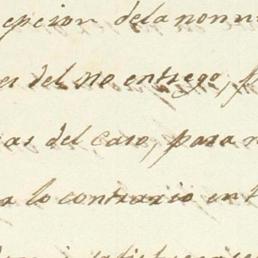 epcion dela non nu
es del no entrego, p
as del caso, para n
a lo contrario en t